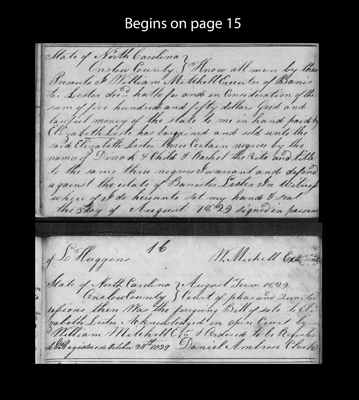 Begins on page 15
State of North Carolina
Onslow County } Know all men by these
Presents I William Mitchell Executor of Banis
ter Lester decd. hath for and in Consideration of the
sum of five hundred and fifty dollar Good and
lawful money of the state to me in hand paid by
Elizabeth Leste has bargained and sold unto the
said Elizabeth Lester three Certain negroes by the
name of Dinah & Child & Rachel the Rite and title
to the same three negroes I warrant and defend
against the estate of Banister Lester In Witness
where of I do hereunto set my hand & seal
the day of August 1829 signed in presents
16
of L Huggins W. Mitchell
State of North Carolina } August Term 1829
Onslow County } Court of pleas and quarter
sessions then Was the forgoing Bill of sale to Eli
zabeth Lester Acknowledged in open Court by
William Mitchell Ex & Ordered to be Register
Registered October 28th 1829 Daniel Ambrose Clerk